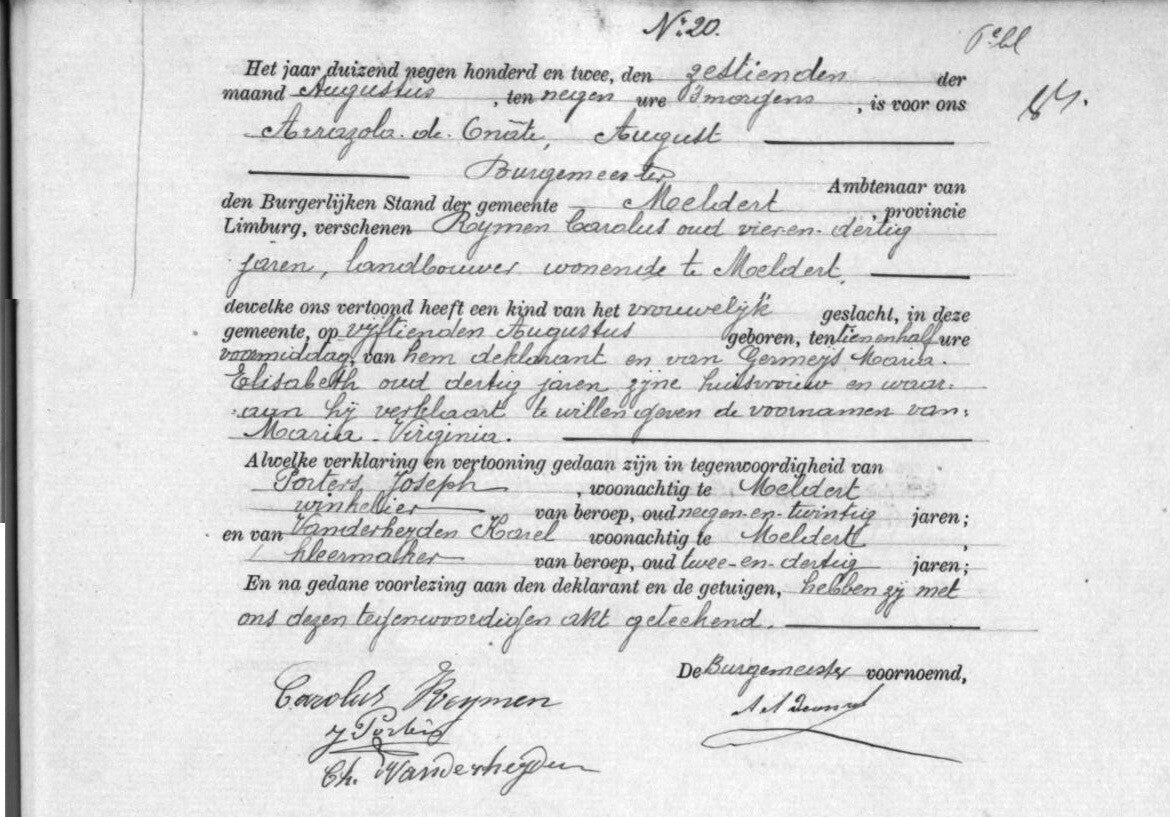 Nr 20.
Het jaar duizend negen honderd en twee, den zestienden der
maand Augustus, ten negen ure 's morgens, is voor ons
Arrazola de Onãte, August
Burgemeester
Ambtenaar van
den Burgerlijken Stand der gemeente Meldert, provincie
Limburg, verschenen Rymen Carolus oud vier en dertig
jaren, landbouwer wonende te Meldert,
dewelke ons vertoond heeft een kind van het vrouwelijk geslacht, in deze
gemeente, op vijftienden Augustus geboren, ten tien en half ure
voormiddag, van hem deklarant en van Germeÿs Maria-
Elisabeth oud dertig jaren zijne huisvrouw en waar-
aan hij verklaart te willen geven de voornamen van:
Maria-Virginia.
Alwelke verklaring en vertooning gedaan zijn in tegenwoordigheid van
Porters Joseph, woonachtig te Meldert
winkelier van beroep, oud negen-en-twintig jaren;
en van Vanderheyden Karel woonachtig te Meldert,
kleermaker van beroep, oud twee-en-dertig jaren;
En na gedane voorlezing aan den deklarant en de getuigen, hebben zij met
ons dezen tegenwoordigen akt geteekend.
De Burgemeester voornoemd,
Carolus Reymen
J Porters
Ch. Vanderheyden